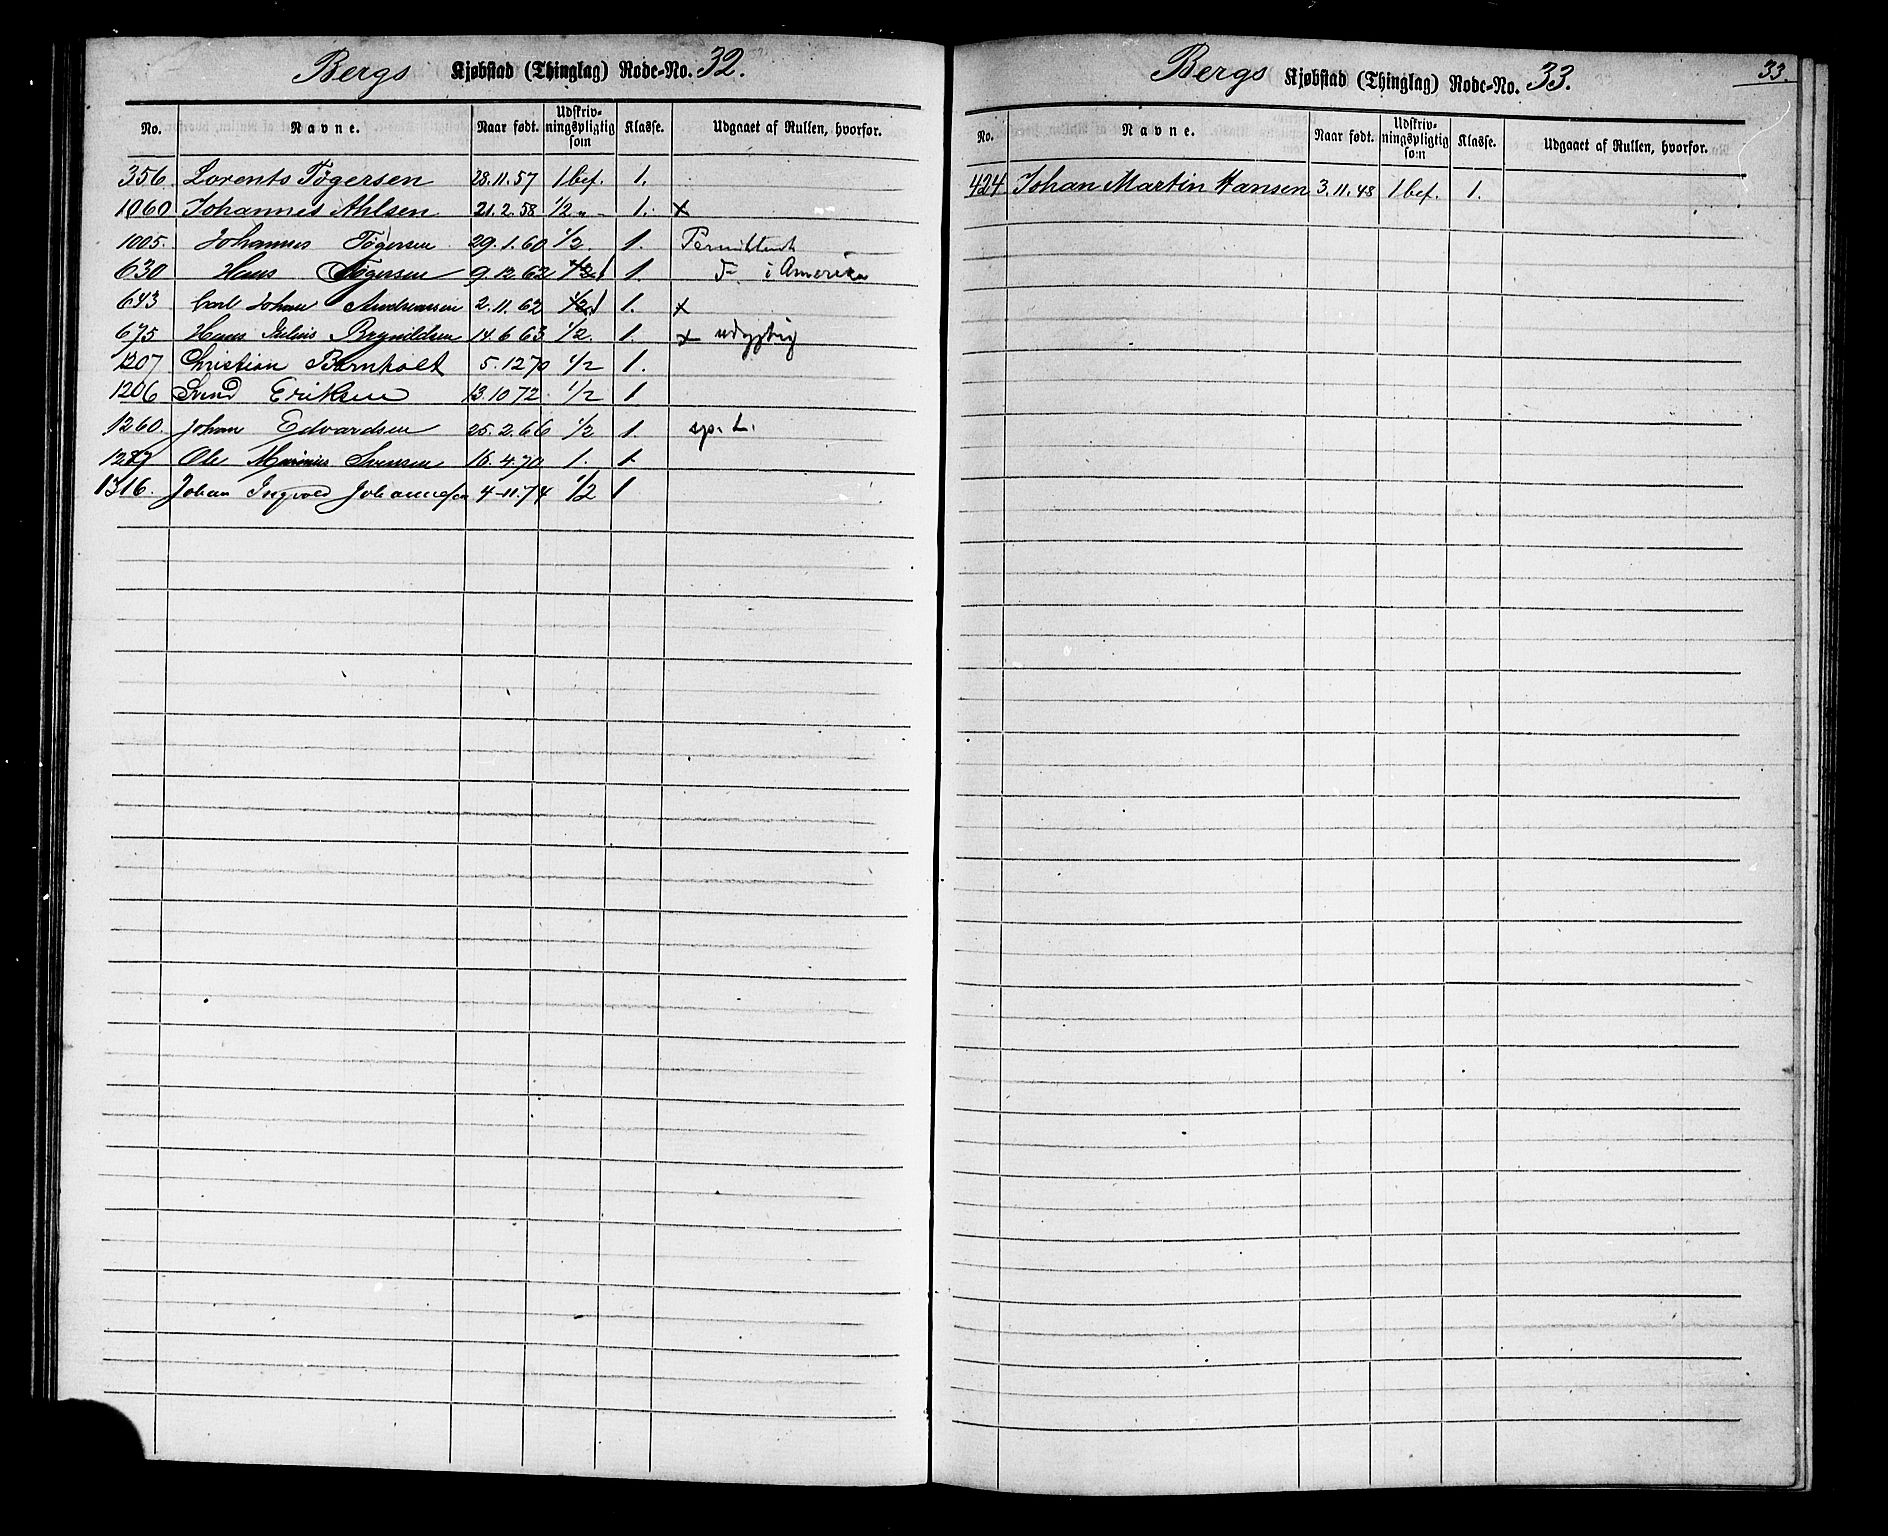 Bergs Kjøbstad (Thinglag) Rode-No. 32.
No. Navne. Naar født. Udskriv-ningspligtig som Klasse. Udgaaet af Rullen, hvorfor.
356. Lorents Tøgersen 28.11.57 1 bef. 1.
1060 Johannes Ahlsen 21.2.58 1/2 „ - 1. x
1005. Johannes Tøgersen 29.1.60 1/2. 1. Permitteret
630 Hans Tøgersen 9.12.62 1/2 1. F. i Amerika
643 Carl Johan Andreassen 2.11.62 1/2 1. x
675 Hans Julius Brynildsen 14.6.63 1/2. 1. x udygtig
1207 Christian Barnholt 5.12.70 1/2 1.
1206 Svend Eriksen 13.10.72. 1/2 1
1260. Johan Edvardsen 25.2.66 1/2 1. sp. L.
Ole Marinius Svensen 16.4.70 1. 1.
1316. Johan Ingvald Johannesen 4-11.74 1/2 1
33.
Bergs Kjøbstad (Thinglag) Rode-No. 33.
No. Navne. Naar født. Udskriv-ningspligtig som Klasse. Udgaaet af Rullen, hvorfor.
424 Johan Martin Hansen 3.11.48 1 bef. 1.